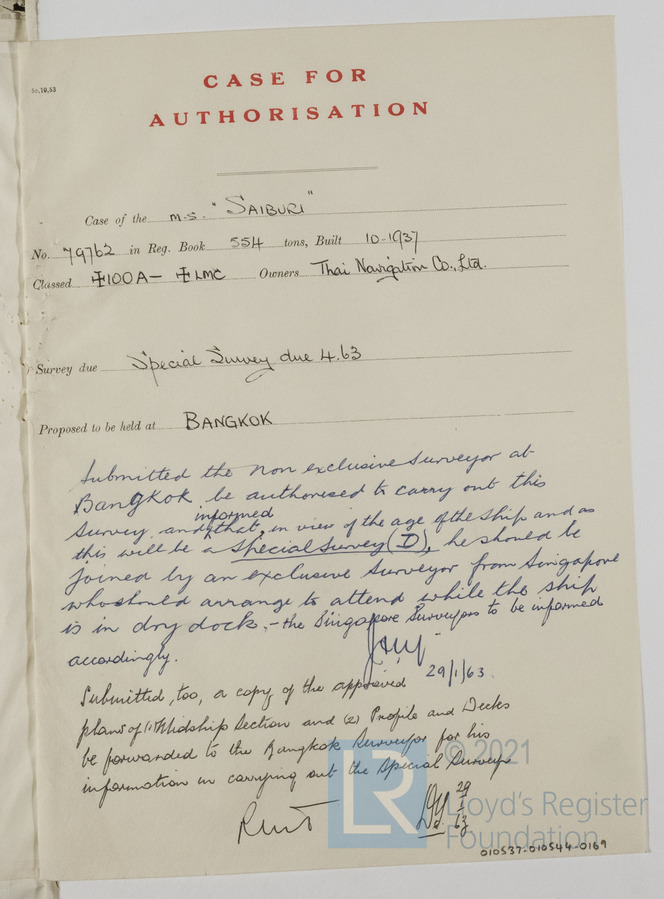 5c.10.53
CASE FOR
AUTHORISATION
Case of the m.s. "SAIBURI"
No. 79762 in Reg. Book 554 tons, Built 10-1937
Classed ✠100A- ✠LMC Owners Thai Navigation Co., Ltd.
Survey due Special Survey due 4.63
Proposed to be held at BANGKOK
Submitted the non exclusive surveyor at
Bangkok be authorised to carry out this
informed
survey, and that, in view of the age of the ship and as
this will be a Special Survey (D), he should be
joined by an exclusive surveyor from Singapore
who should arrange to attend while the ship
is in dry dock, - the Singapore Surveyors to be informed
accordingly.
29/1/63.
Submitted, too, a copy of the approved
plans of (1) Midship Section and (2) Profile and Decks
be forwarded to the Bangkok Surveyor for his
information in carrying out the Special Survey
29
1
63
LR
© 2021
Lloyd's Register
Foundation
010537-010544-0169